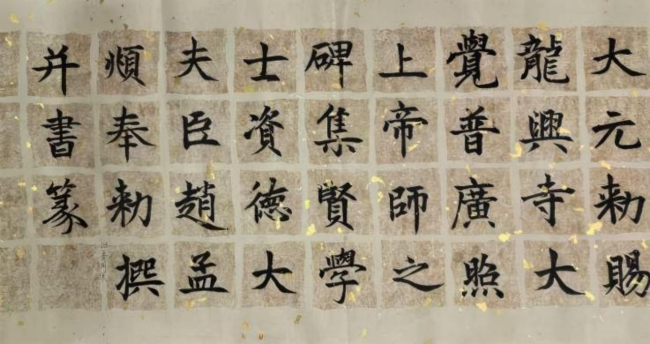 大元勅賜
龍興寺大
覺普廣照
上帝師之
碑集賢學
士資德大
夫臣趙孟
頫奉勅撰
并書篆